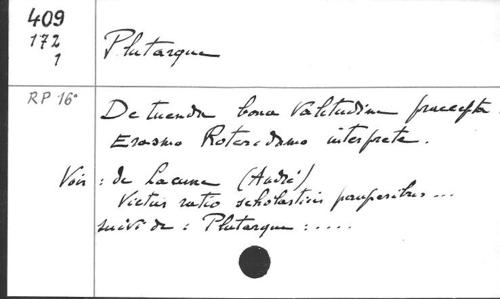 409
172
1
Plutarque
RP 16°
De tuenda bona Valitudine praecepta.
Erasmo Roterodamo interprete.
Voir : de Lacune (André)
Victus ratio scholasticis pauperibus...
suivi de : Plutarque : ....